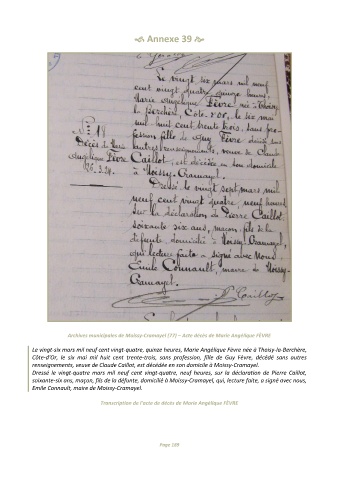 Annexe 39
Le vingt six mars mil neuf
cent vingt quatre, quinze heures,
Marie Angélique Fèvre née à Thoisy
la Berchère, Côte-d'Or, le six mai
mil huit cent trente trois, sans pro-
fession fille de Guy Fèvre décédé sans
autres renseignements, veuve de Claude
Caillot, est décédée en son domicile
à Moissy-Cramayel.
Dressé le vingt sept mars mil
neuf cent vingt quatre, neuf heures,
sur la déclaration de Pierre Caillot,
soixante six ans, maçon, fils de la
défunte domicilié à Moissy-Cramayel,
qui lecture faite a signé avec Nous
Emile Connault, maire de Moissy-
Cramayel.
P. Caillot
Décès de Marie
Angélique Fèvre
26.3.24.
Archives municipales de Moissy-Cramayel (77) – Acte décès de Marie Angélique FÈVRE
Le vingt-six mars mil neuf cent vingt-quatre, quinze heures, Marie Angélique Fèvre née à Thoisy-la-Berchère,
Côte-d'Or, le six mai mil huit cent trente-trois, sans profession, fille de Guy Fèvre, décédé sans autres
renseignements, veuve de Claude Caillot, est décédée en son domicile à Moissy-Cramayel.
Dressé le vingt-quatre mars mil neuf cent vingt-quatre, neuf heures, sur la déclaration de Pierre Caillot,
soixante-six ans, maçon, fils de la défunte, domicilié à Moissy-Cramayel, qui, lecture faite, a signé avec nous,
Emile Connault, maire de Moissy-Cramayel.
Transcription de l'acte de décès de Marie Angélique FÈVRE
Page 189